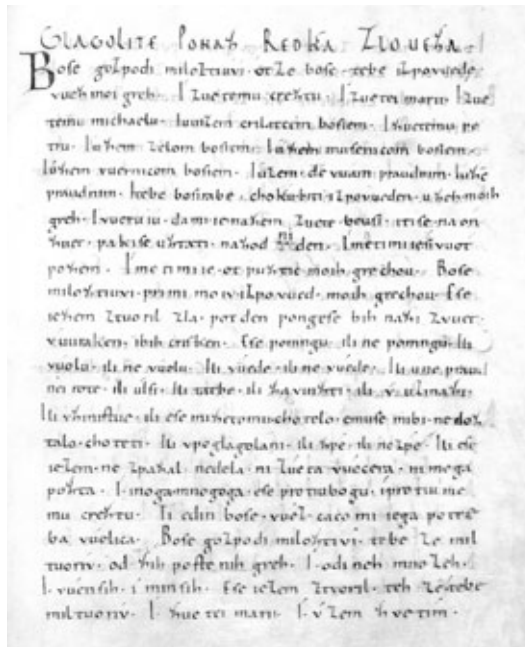 GLAGOLITE PONAZ REDKA ZLOUEZA.
Bose gozpodi miloztiuvi. otze bose. tebe izpovuede.
vuez moi greh. I zuetemu creztu. I zuetei marii. I zue
temu michaelu. Iuuizem crilatcem bosiem. I zuetemu pe
tru. Iuzem zelom bosiem. Iuzem musenicom bosiem.
Iuzem vuernicom bosiem. Iuzem. devuam praudnim. Iuze
praudnim. Itebe bosirabe. chokubiti izpovueden. uzeh moih
greh. I vueruiu. dami ie nazem zuete beusi. iti se na on
zuet. pakise uztati. nazodni den. Imeti mi ie sivuot
pozem. Imeti mi ie. ot puztic moih grechou. Bose
miloztiuvi. primi moiv. izpovued. moih grechou. Ese
iezem ztuoril zla. pot den pongese bih nazi zvuet.
vuuraken. ibih crisken. Ese pomngu. ili ne pomngu. Ili
vuolu. ili ne vuolu. Ili vuede. ili ne vuede. Ili u ne praud
nei rote. ili ulsi. Ili tatbe. ili zavuizti. ili. v uzmazi.
Ili vzinistue. ili ese mizetomu. chotelo. emuse mibi. ne doz
talo. choteti. Ili vpoglagolani. ili zpe. ili nezpe. Ili ese
iezem. ne zpazal. nedela. ni zueta vuecera. ni mega
pozta. I. inoga mnogoga. ese protiubogu. i protiu me
mu creztu. Ti edin bose. vuez. caco mi iega potre
ba vuelica. Bose gozpodi miloztivi. tebe ze mil
tuoriv. od zih postenih greh. I. odineh mnozeh.
I. vuensih. i minsih. Ese iezem ztvoril. teh ze tebe
miltuoriv. I. zuetei marii. I. vzem zvetim.